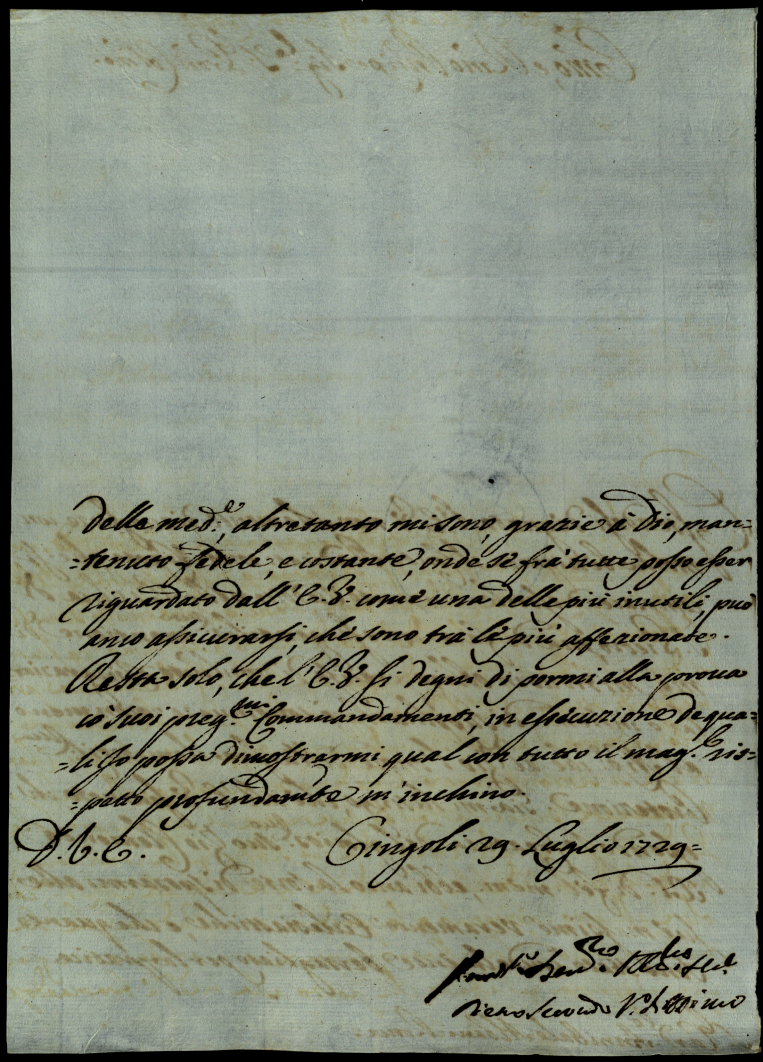 delle med.e, altretanto mi sono, grazie à Dio, man=
=tenuto fedele, e costante, onde se frà tutte posso esser
riguardato dall'E.V. come una delle più inutili, può
anco assicurarsi, che sono trà le più affezionate.
Resta solo, che l'E.V. si degni di pormi alla prova
co' suoi preg.mi Commandamenti, in essecuzione de qua=
=li io possa dimostrarmi qual con tutto il mag.e ris=
=petto profundamte m'inchino.
D. V. E.
Cingoli 29. Luglio 1729=